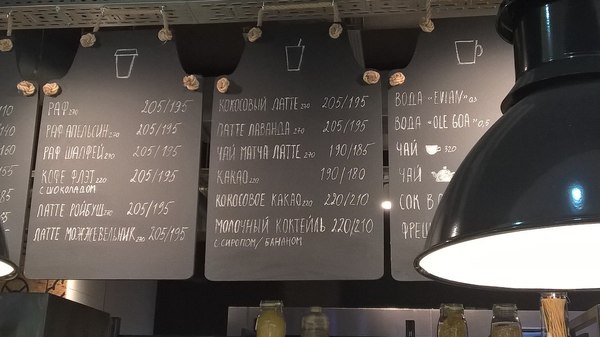 РАФ 270 205/195
РАФ АПЕЛЬСИН 270 205/195
РАФ ШАЛФЕЙ 270 205/195
КОФЕ ФЛЭТ 220 205/195
С ШОКОЛАДОМ
ЛАТТЕ РОЙБУШ 270 205/195
ЛАТТЕ МОЖЖЕВЕЛЬНИК 270 205/195
КОКОСОВЫЙ ЛАТТЕ 270 205/195
ЛАТТЕ ЛАВАНДА 270 205/195
ЧАЙ МАТЧА ЛАТТЕ 270 190/185
КАКАО 220 190/180
КОКОСОВОЕ КАКАО 220 220/210
МОЛОЧНЫЙ КОКТЕЙЛЬ 220/210
С СИРОПОМ/БАНАНОМ
ВОДА «EVIAN» 0,5
ВОДА «OLE GOA» 0,5
ЧАЙ 320
ЧАЙ
СОК В